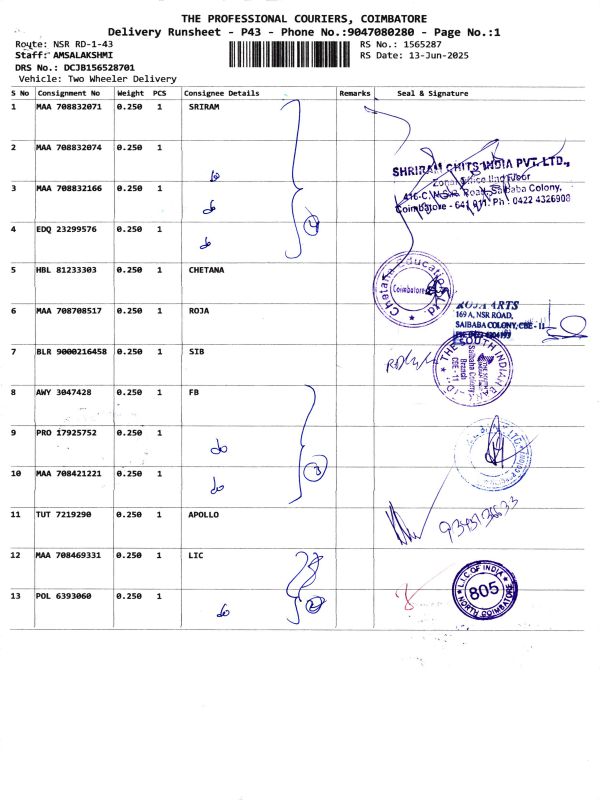 THE PROFESSIONAL COURIERS, COIMBATORE
Delivery Runsheet - P43 - Phone No.:9047080280 - Page No.:1
Route: NSR RD-1-43 RS No.: 1565287
Staff: AMSALAKSHMI RS Date: 13-Jun-2025
DRS No.: DCJB156528701
Vehicle: Two Wheeler Delivery
S No Consignment No Weight PCS Consignee Details Remarks Seal & Signature
1 MAA 708832071 0.250 1 SRIRAM
2 MAA 708832074 0.250 1 do
SHRIRAM CHITS INDIA PVT. LTD.,
Zonal Office IInd Floor
3 MAA 708832166 0.250 1 do
416-C, N.S.R. Road, Saibaba Colony,
Coimbatore - 641 011. Ph : 0422 4326903
4 EDQ 23299576 0.250 1 do 4
5 HBL 81233303 0.250 1 CHETANA
Chetana Education Ltd.
Coimbatore
6 MAA 708708517 0.250 1 ROJA
ROJA ARTS
169 A, NSR ROAD,
SAIBABA COLONY, CBE - 11
7 BLR 9000216458 0.250 1 SIB
THE SOUTH INDIAN
Saibaba Colony
Branch
CBE - 11
8 AWY 3047428 0.250 1 FB
9 PRO 17925752 0.250 1 do
10 MAA 708421221 0.250 1 do 3
11 TUT 7219290 0.250 1 APOLLO
12 MAA 708469331 0.250 1 LIC
L.I.C OF INDIA
805
NORTH COIMBATORE
13 POL 6393060 0.250 1 do 2